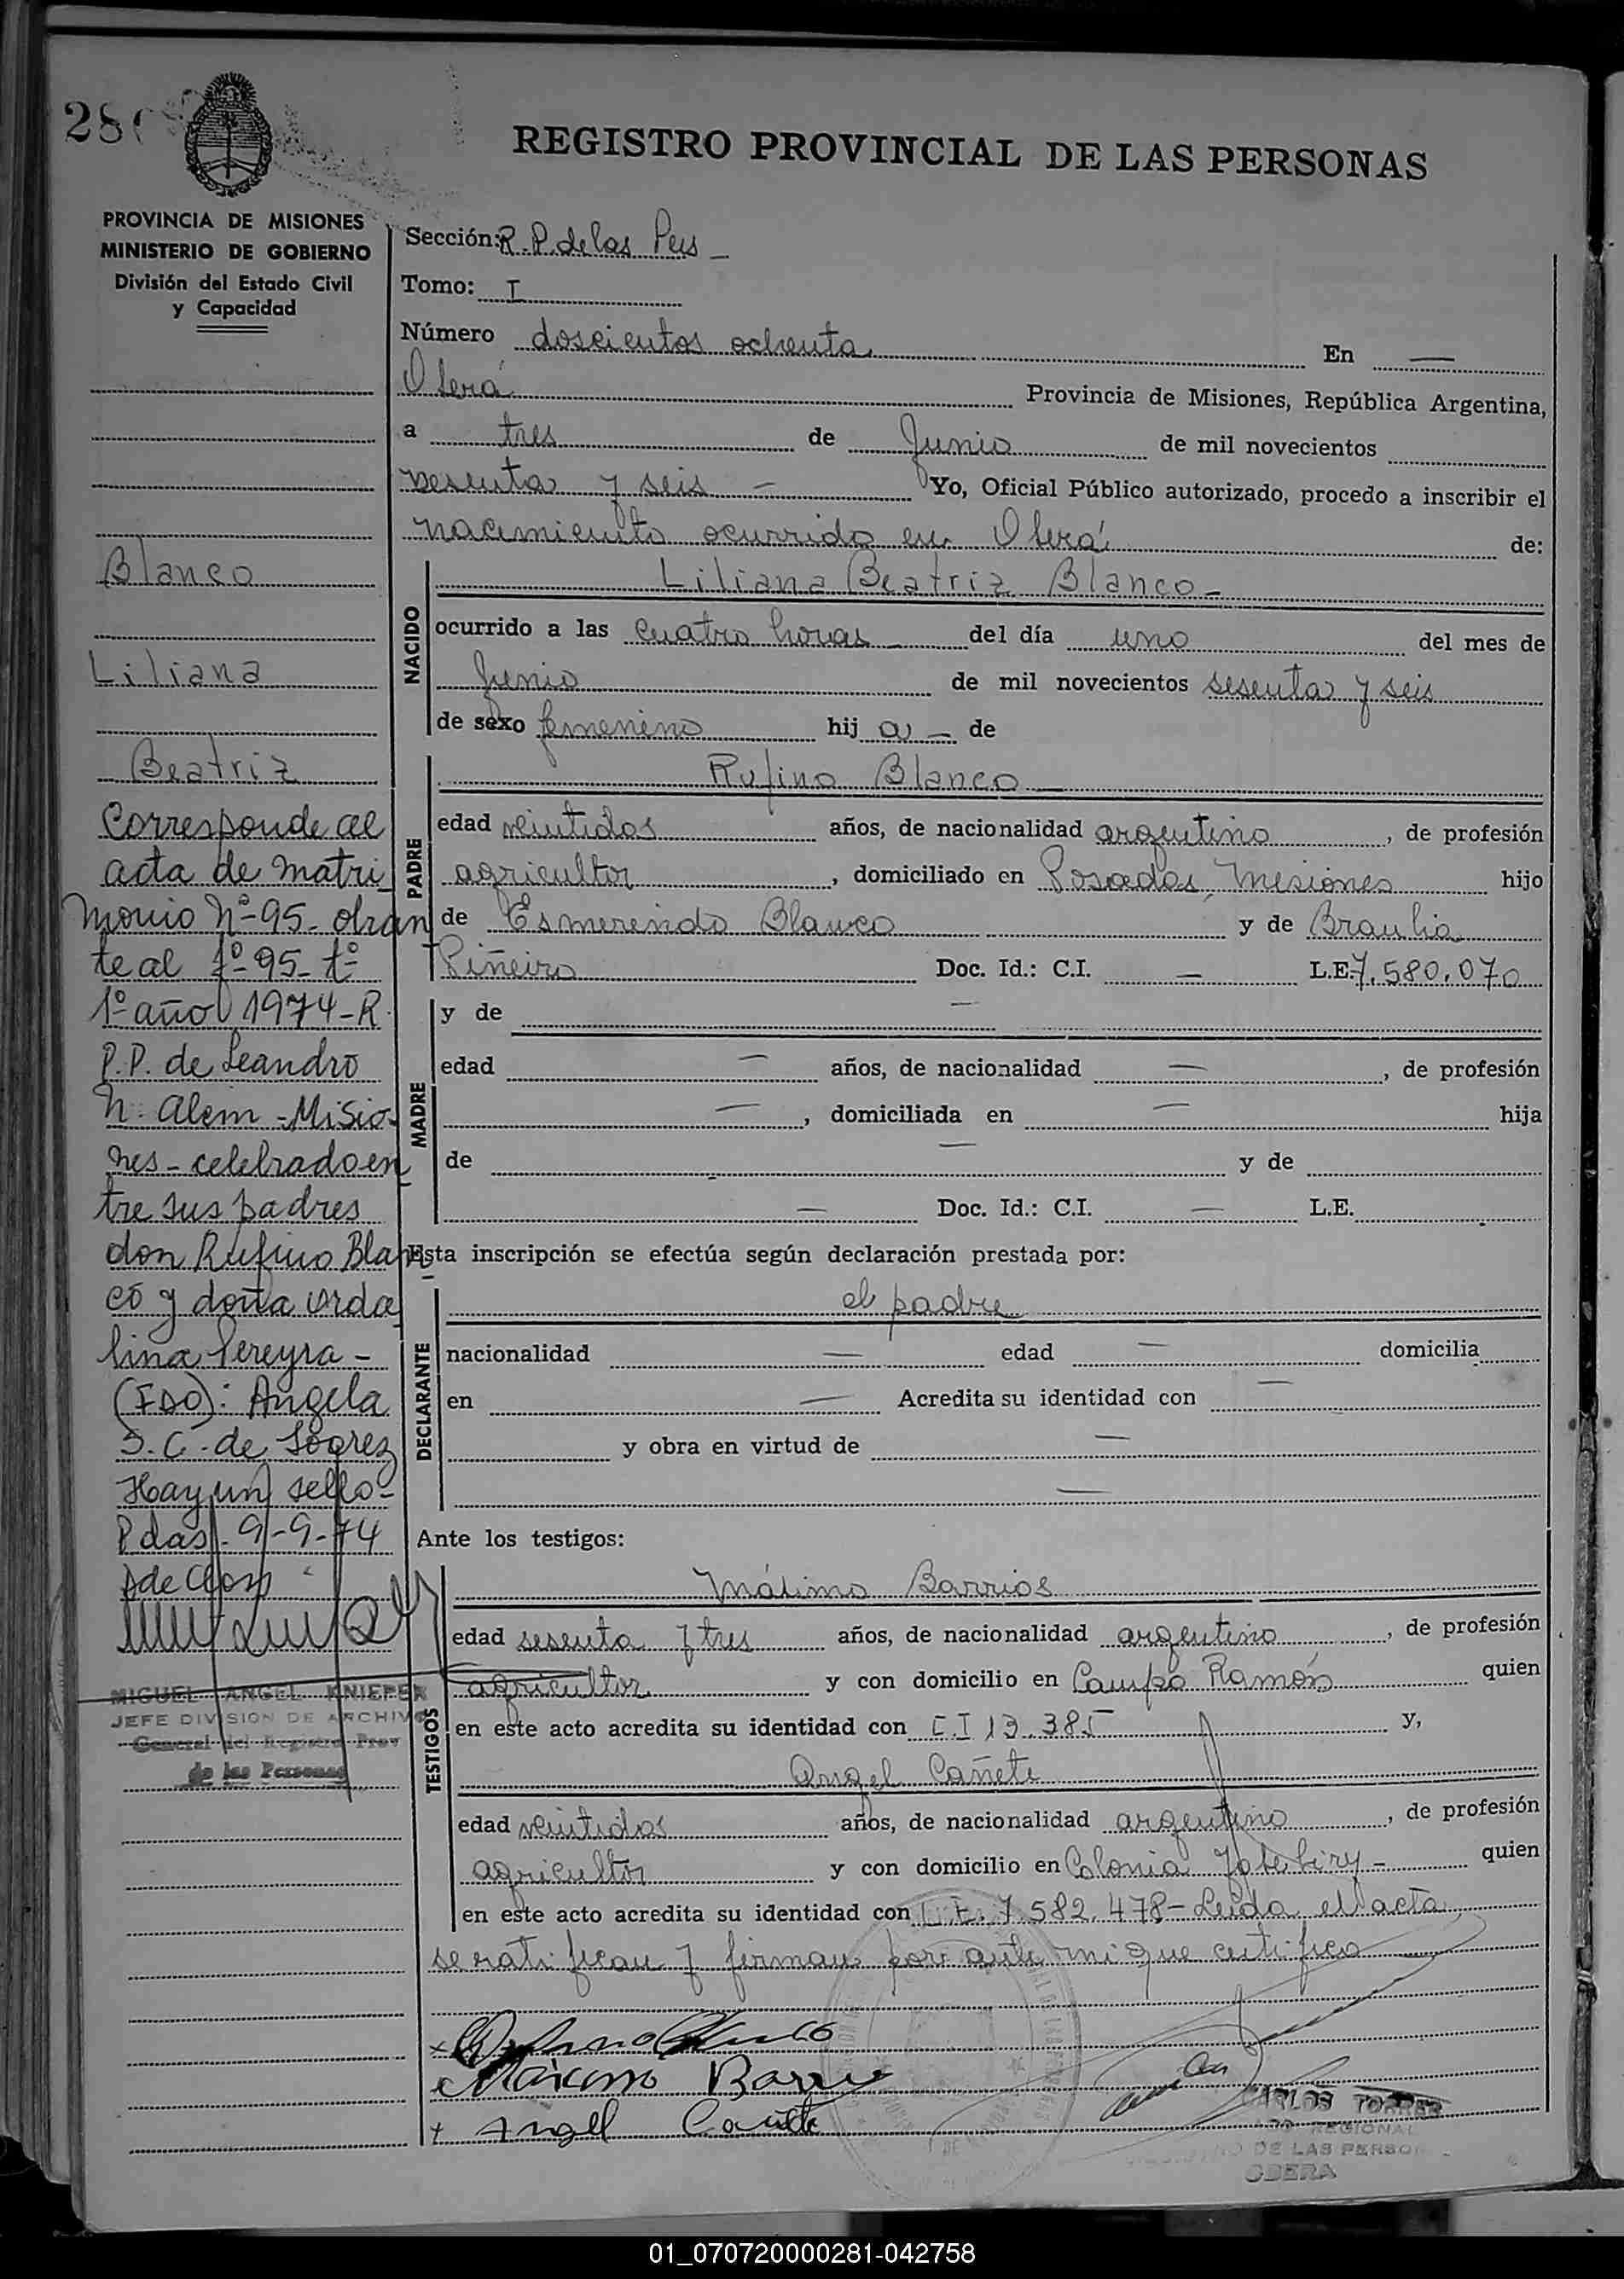 28
REGISTRO PROVINCIAL DE LAS PERSONAS
PROVINCIA DE MISIONES
MINISTERIO DE GOBIERNO
División del Estado Civil
y Capacidad
Sección: R. P. de las Pers
Tomo: I
Número doscientos ochenta En —
Oberá Provincia de Misiones, República Argentina,
a tres de Junio de mil novecientos
sesenta y seis — Yo, Oficial Público autorizado, procedo a inscribir el
nacimiento ocurrido en Oberá de:
NACIDO
Liliana Beatriz Blanco -
ocurrido a las cuatro horas — del día uno del mes de
Junio de mil novecientos sesenta y seis
de sexo femenino hij a — de
PADRE
Rufino Blanco —
edad veintidos años, de nacionalidad argentino, de profesión
agricultor, domiciliado en Posadas, Misiones hijo
de Esmerindo Blanco y de Braulia
Piñeiro Doc. Id.: C.I. — L.E. 7.580.070
MADRE
y de —
edad — años, de nacionalidad —, de profesión
—, domiciliada en — hija
de — y de
— Doc. Id.: C.I. — L.E.
Esta inscripción se efectúa según declaración prestada por:
DECLARANTE
el padre
nacionalidad — edad — domicilia
en — Acredita su identidad con —
y obra en virtud de —
—
Ante los testigos:
TESTIGOS
Máximo Barrios
edad sesenta y tres años, de nacionalidad argentino, de profesión
agricultor y con domicilio en Campo Ramón quien
en este acto acredita su identidad con C I 13.385 y,
Angel Cañete
edad veintidos años, de nacionalidad argentino, de profesión
agricultor y con domicilio en Colonia Yabebiry - quien
en este acto acredita su identidad con L.E. 7.582.478- Leida el acta
se ratifican y firman por ante mi que certifico
Máximo Barrio
+ Angel Cañete
CARLOS TORRES
REGIONAL
DE LAS PERSO
OBERA
Blanco
Liliana
Beatriz
Corresponde al
acta de matri
monio Nº 95- obran
te al fº 95- tº
1º año 1974-R.
P.P. de Leandro
N. Alem - Misio
nes - celebrado en
tre sus padres
don Rufino Blan
co y doña Orda
lina Pereyra -
(FDO): Angela
S. C. de Soarez
Hay un sello-
Pdas. 9-9-74
MIGUEL ANGEL KNIEPER
JEFE DIVISION DE ARCHIVO
General del Registro Prov
de las Personas
01_070720000281-042758